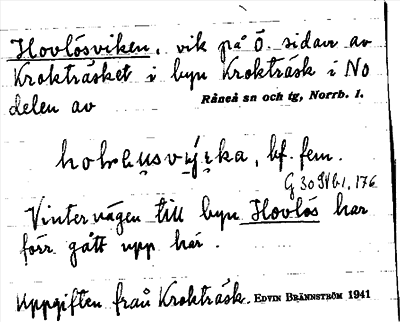 Hovlösviken, vik på Ö. sidan av
Krokträsket i byn Krokträsk i NO
delen av
Råneå sn och tg, Norrb. l.
bf. fem.
G 30 Nb1, 176
Vintervägen till byn Hovlös har
förr gått upp här.
Uppgiften från Krokträsk. EDVIN BRÄNNSTRÖM 1941